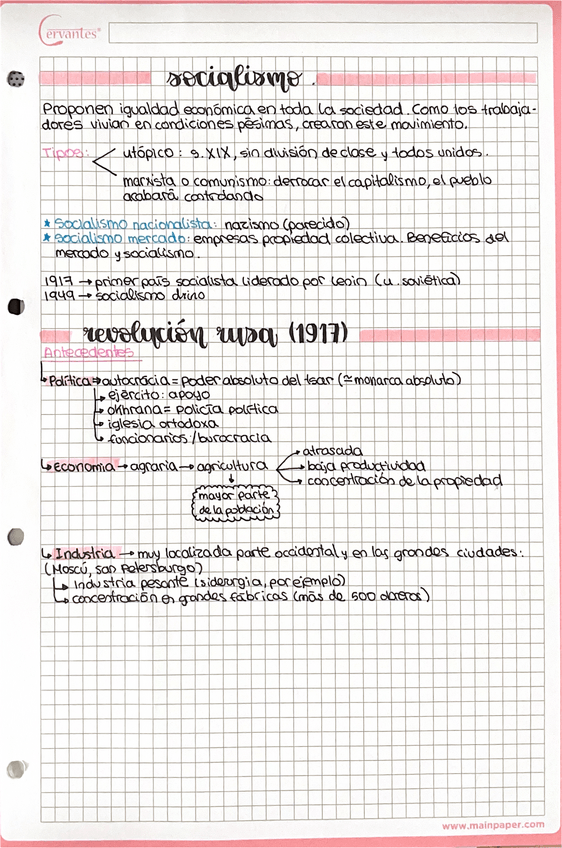 Cervantes®
socialismo.
Proponen igualdad económica en toda la sociedad. Como los trabaja-
dores vivian en condiciones pésimas, crearon este movimiento.
Tipos:
utópico: s. XIX, sin división de clase y todos unidos.
marxista o comunismo: derrocar el capitalismo, el pueblo
acabará controlando
* Socialismo nacionalista: nazismo (parecido)
* socialismo mercado: empresas propiedad colectiva. Beneficios del
mercado y socialismo.
1917 → primer país socialista liderado por Lenin (u. soviética)
1949 → socialismo chino
revolución rusa (1917)
Antecedentes
↳ Política ⇒ autocrácia = poder absoluto del tsar (≃ monarca absoluto)
↳ ejército: apoyo
↳ okhrana = policía política
↳ iglesia ortodoxa
↳ funcionarios / burocracia
↳ economia → agraria → agricultura
→ atrasada
→ baja productividad
→ concentración de la propiedad
↓
mayor parte
de la población
↳ Industria → muy localizada parte occidental y en las grandes ciudades:
(Moscú, san Petersburgo)
↳ industria pesante (siderurgia, por ejemplo)
↳ concentración en grandes fábricas (más de 500 obreros)
www.mainpaper.com